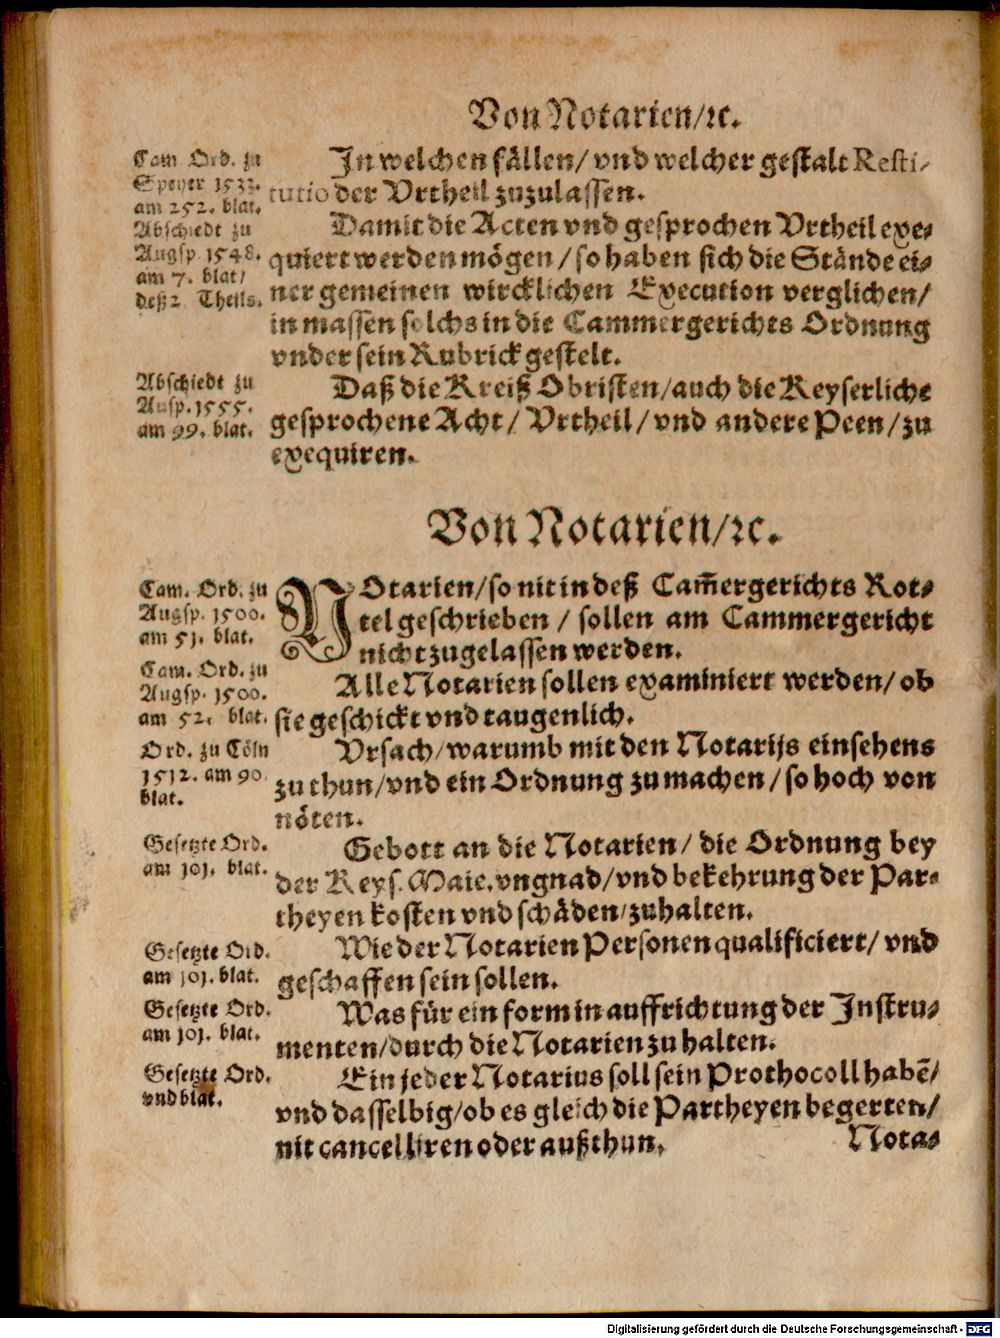 Von Notarien/ꝛc.
Cam. Ord. zu
Speyer 1533.
am 252. blat.
In welchen fällen/vnd welcher gestalt Resti-
tutio der Vrtheil zuzulassen.
Abschiedt zu
Augsp. 1548.
am 7. blat/
deß 2 Theils.
Damit die Acten vnd gesprochen Vrtheil exe-
quiert werden mögen/so haben sich die Stände ei-
ner gemeinen wircklichen Execution verglichen/
in massen solchs in die Cammergerichts Ordnung
vnder sein Rubrick gestelt.
Abschiedt zu
Ausp. 1555.
am 99. blat.
Daß die Kreiß Obristen/auch die Keyserliche
gesprochene Acht/Vrtheil/vnd andere Peen/zu
exequiren.
Von Notarien/ꝛc.
Cam. Ord. zu
Augsp. 1500.
am 51. blat.
NOtarien/so nit in deß Cam̄ergerichts Rot-
tel geschrieben/sollen am Cammergericht
nicht zugelassen werden.
Cam. Ord. zu
Augsp. 1500.
am 52. blat.
Alle Notarien sollen examiniert werden/ob
sie geschickt vnd taugenlich.
Ord. zu Cöln
1512. am 90
blat.
Vrsach/warumb mit den Notarijs einsehens
zu thun/vnd ein Ordnung zu machen/so hoch von
nöten.
Gesetzte Ord.
am 101. blat.
Gebott an die Notarien/die Ordnung bey
der Keys. Maie. vngnad/vnd bekehrung der Par-
theyen kosten vnd schäden/zuhalten.
Gesetzte Ord.
am 101. blat.
Wie der Notarien Personen qualificiert/vnd
geschaffen sein sollen.
Gesetzte Ord.
am 101. blat.
Was für ein form in auffrichtung der Instru-
menten/durch die Notarien zu halten.
Gesetzte Ord.
vnd blat.
Ein jeder Notarius soll sein Prothocoll habē/
vnd dasselbig/ob es gleich die Partheyen begerten/
nit cancelliren oder außthun.
Nota-
Digitalisierung gefördert durch die Deutsche Forschungsgemeinschaft - DFG